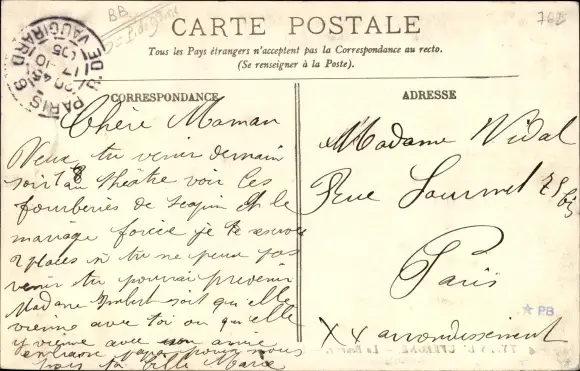 CARTE POSTALE
Tous les Pays étrangers n'acceptent pas la Correspondance au recto.
(Se renseigner à la Poste).
BB
762
PARIS
R. DE VAUGIRARD
CORRESPONDANCE
Chère Maman
Veux tu venir demain
soir 18 au théâtre voir Les
fourberies de Scapin et le
mariage forcé je te
2 places si tu ne peux pas
venir tu pourrai prevenir
Madame Imbert soit qu'elle
vienne avec toi ou qu'elle
y vienne avec une amie
embrasse papa pour nous
ta fille Marie
ADRESSE
Madame Vidal
Rue Lourmel 75 bis
Paris
XV arrondissement
PB